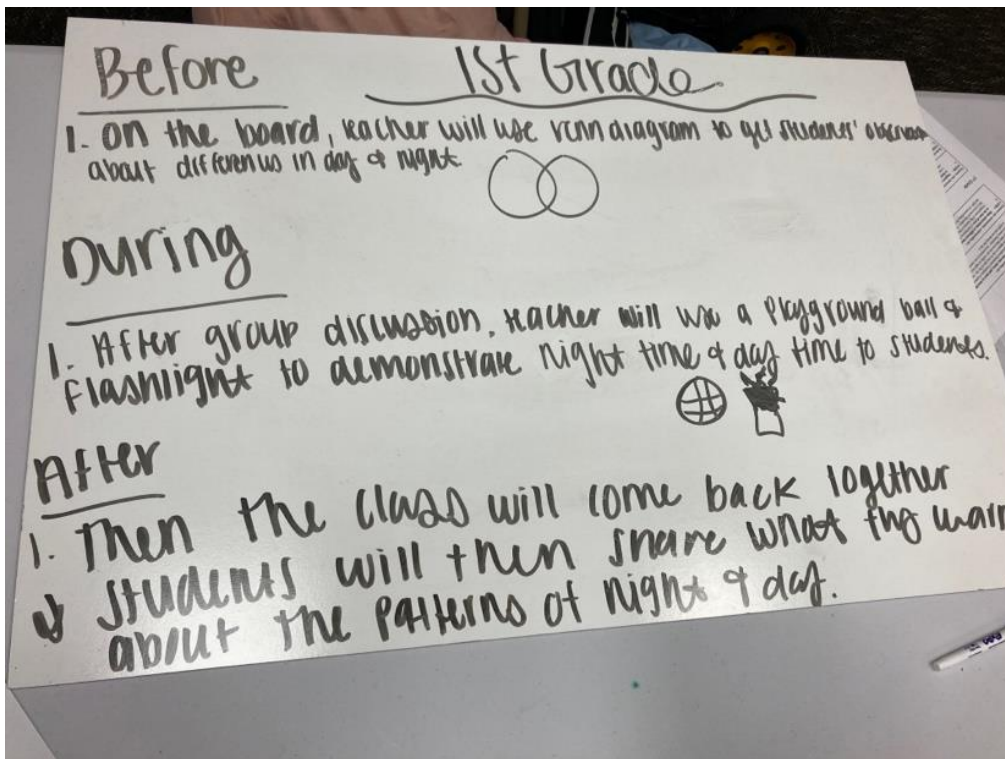 Before
1st Grade
1. On the board, teacher will use venn diagram to get students' observat
about differences in day & night
During
1. After group discussion, teacher will use a playground ball &
flashlight to demonstrate night time & day time to students.
After
1. Then the class will come back together
students will then share what they
about the patterns of night & day.